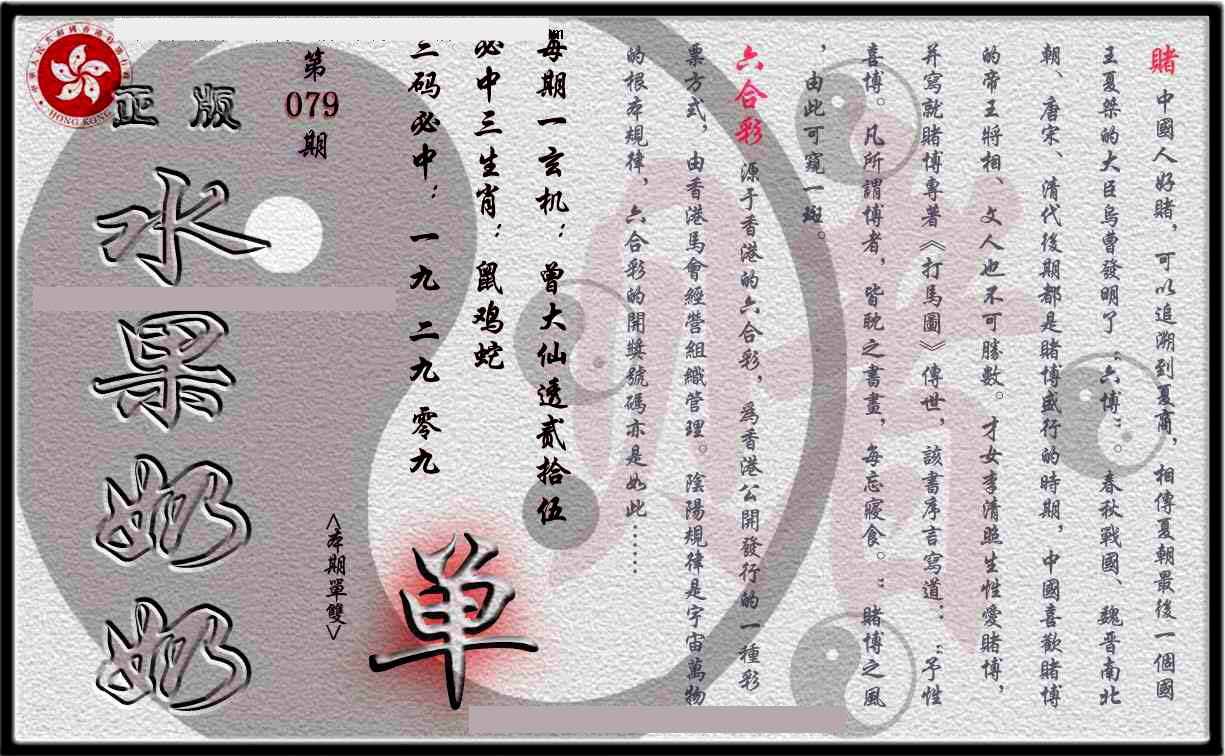 賭 中國人好賭，可以追溯到夏商，相傳夏朝最後一個國
王夏桀的大臣烏曹發明了“六博”。春秋戰國、魏晋南北
朝、唐宋、清代後期都是賭博盛行的時期，中國喜歡賭博
的帝王將相、文人也不可勝數。才女李清照生性愛賭博，
并寫就賭博專著《打馬圖》傳世，該書序言寫道：“予性
喜博。凡所謂博者，皆耽之書晝，每忘寢食。：賭博之風
，由此可窺一斑。
六合彩 源于香港的六合彩，為香港公開發行的一種彩
票方式，由香港馬會經營組織管理。陰陽規律是宇宙萬物
的根本規律，六合彩的開獎號碼亦是如此……
每期一玄机：曾大仙透贰拾伍
必中三生肖：鼠鸡蛇
三码必中：一九 二九 零九
第
079
期
<本期單雙>
单
正版
水果奶奶
HONG KONG